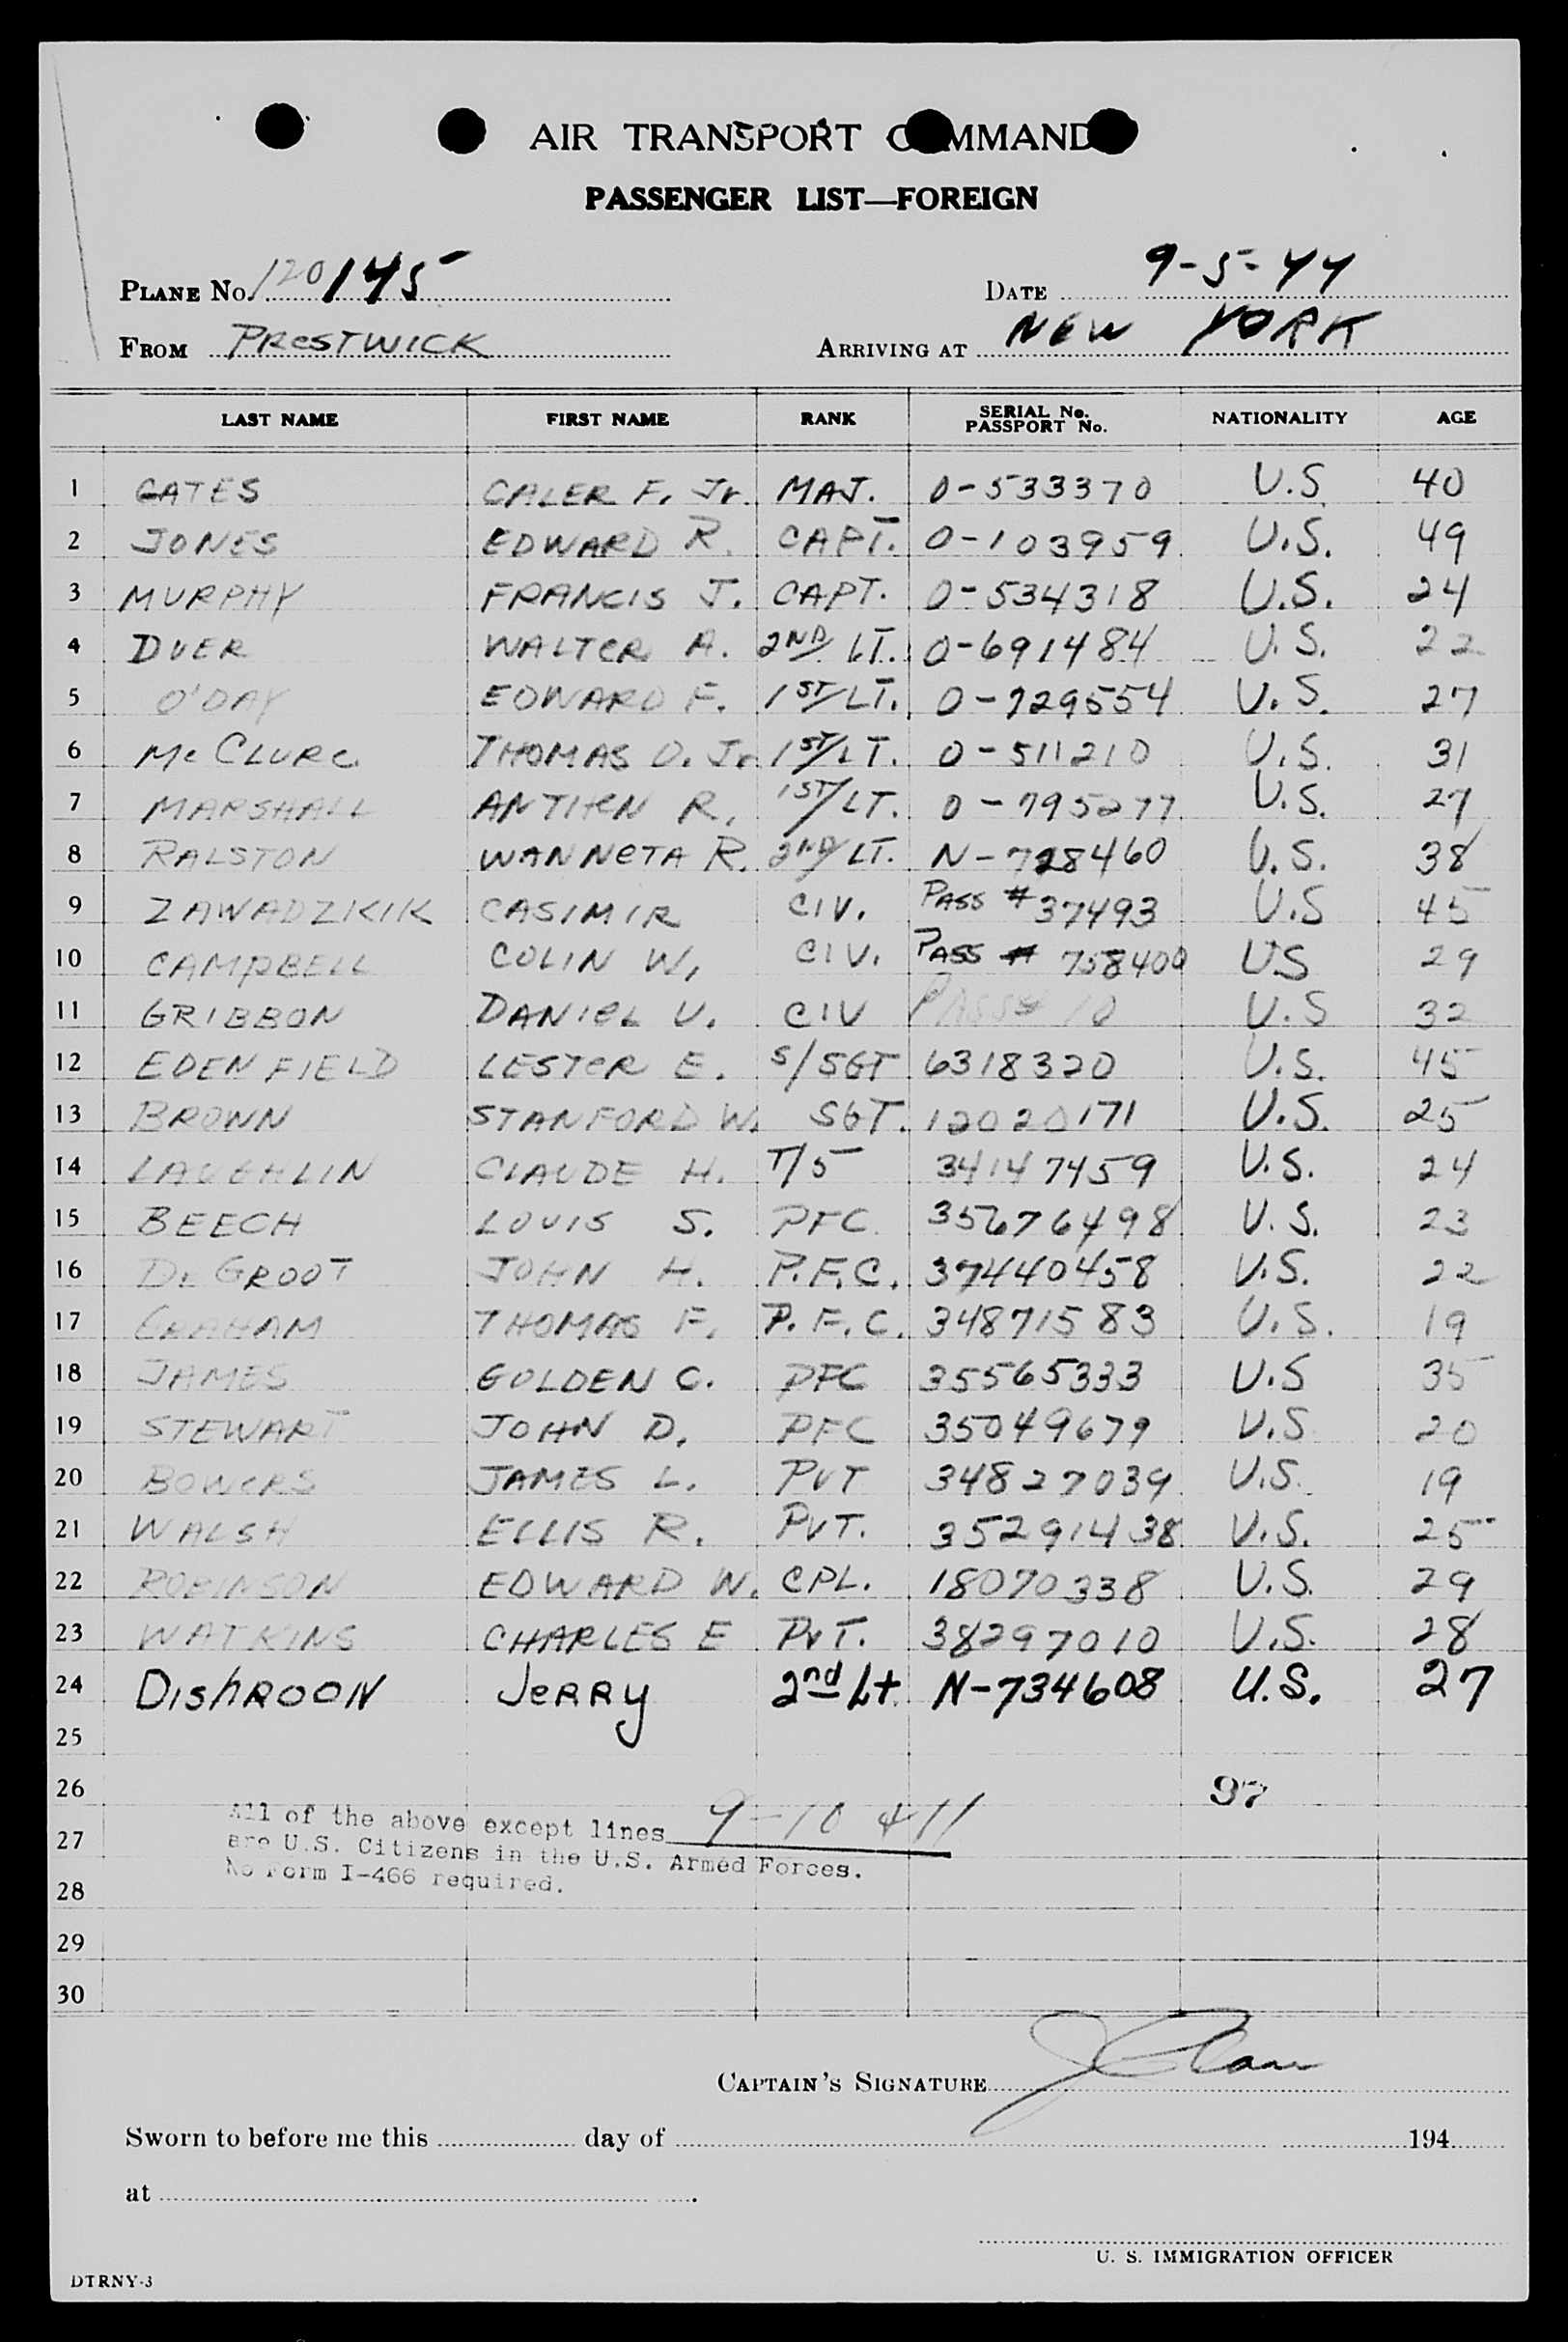 AIR TRANSPORT COMMAND
PASSENGER LIST—FOREIGN
PLANE No. 120145 DATE 9-5-44
FROM PRESTWICK ARRIVING AT NEW YORK
LAST NAME FIRST NAME RANK SERIAL No. PASSPORT No. NATIONALITY AGE
1 GATES CALER F. Jr. MAJ. O-533370 U.S 40
2 JONES EDWARD R. CAPT. O-103959 U.S. 49
3 MURPHY FRANCIS J. CAPT. O-534318 U.S. 24
4 DUER WALTER A. 2ND LT. O-691484 U.S. 22
5 O'DAY EDWARD F. 1ST/LT. O-729554 U.S. 27
6 McCLURE THOMAS D. Jr 1ST/LT. O-511210 U.S. 31
7 MARSHALL R. 1ST/LT. O-795277 U.S. 27
8 RALSTON WANNETA R. 2ND/LT. N-728460 U.S. 38
9 ZAWADZKIK CASIMIR CIV. PASS #37493 U.S 45
10 CAMPBELL COLIN W. CIV. PASS # 758400 US 29
11 GRIBBON DANIEL V. CIV PASS# 10 U.S 32
12 EDENFIELD LESTER E. S/SGT 6318320 U.S. 45
13 BROWN STANFORD W. SGT. 12020171 U.S. 25
14 LAUGHLIN CLAUDE H. T/5 34147459 U.S. 24
15 BEECH LOUIS S. PFC 35676498 U.S. 23
16 DeGROOT JOHN H. P.F.C. 37440458 U.S. 22
17 GRAHAM THOMAS F. P.F.C. 34871583 U.S. 19
18 JAMES GOLDEN C. PFC 35565333 U.S 35
19 STEWART JOHN D. PFC 35049679 U.S 20
20 BOWERS JAMES L. PVT 34827039 U.S. 19
21 WALSH ELLIS R. PVT. 35291438 U.S. 25
22 ROBINSON EDWARD W. CPL. 18070338 U.S. 29
23 WATKINS CHARLES E PVT. 38297010 U.S. 28
24 DishROON JeRRy 2nd Lt. N-734608 U.S. 27
25
26 97
All of the above except lines 9-10 & 11
27
are U.S. Citizens in the U.S. Armed Forces.
No Form I-466 required.
28
29
30
CAPTAIN'S SIGNATURE
Sworn to before me this day of 194
at
U. S. IMMIGRATION OFFICER
DTRNY-3